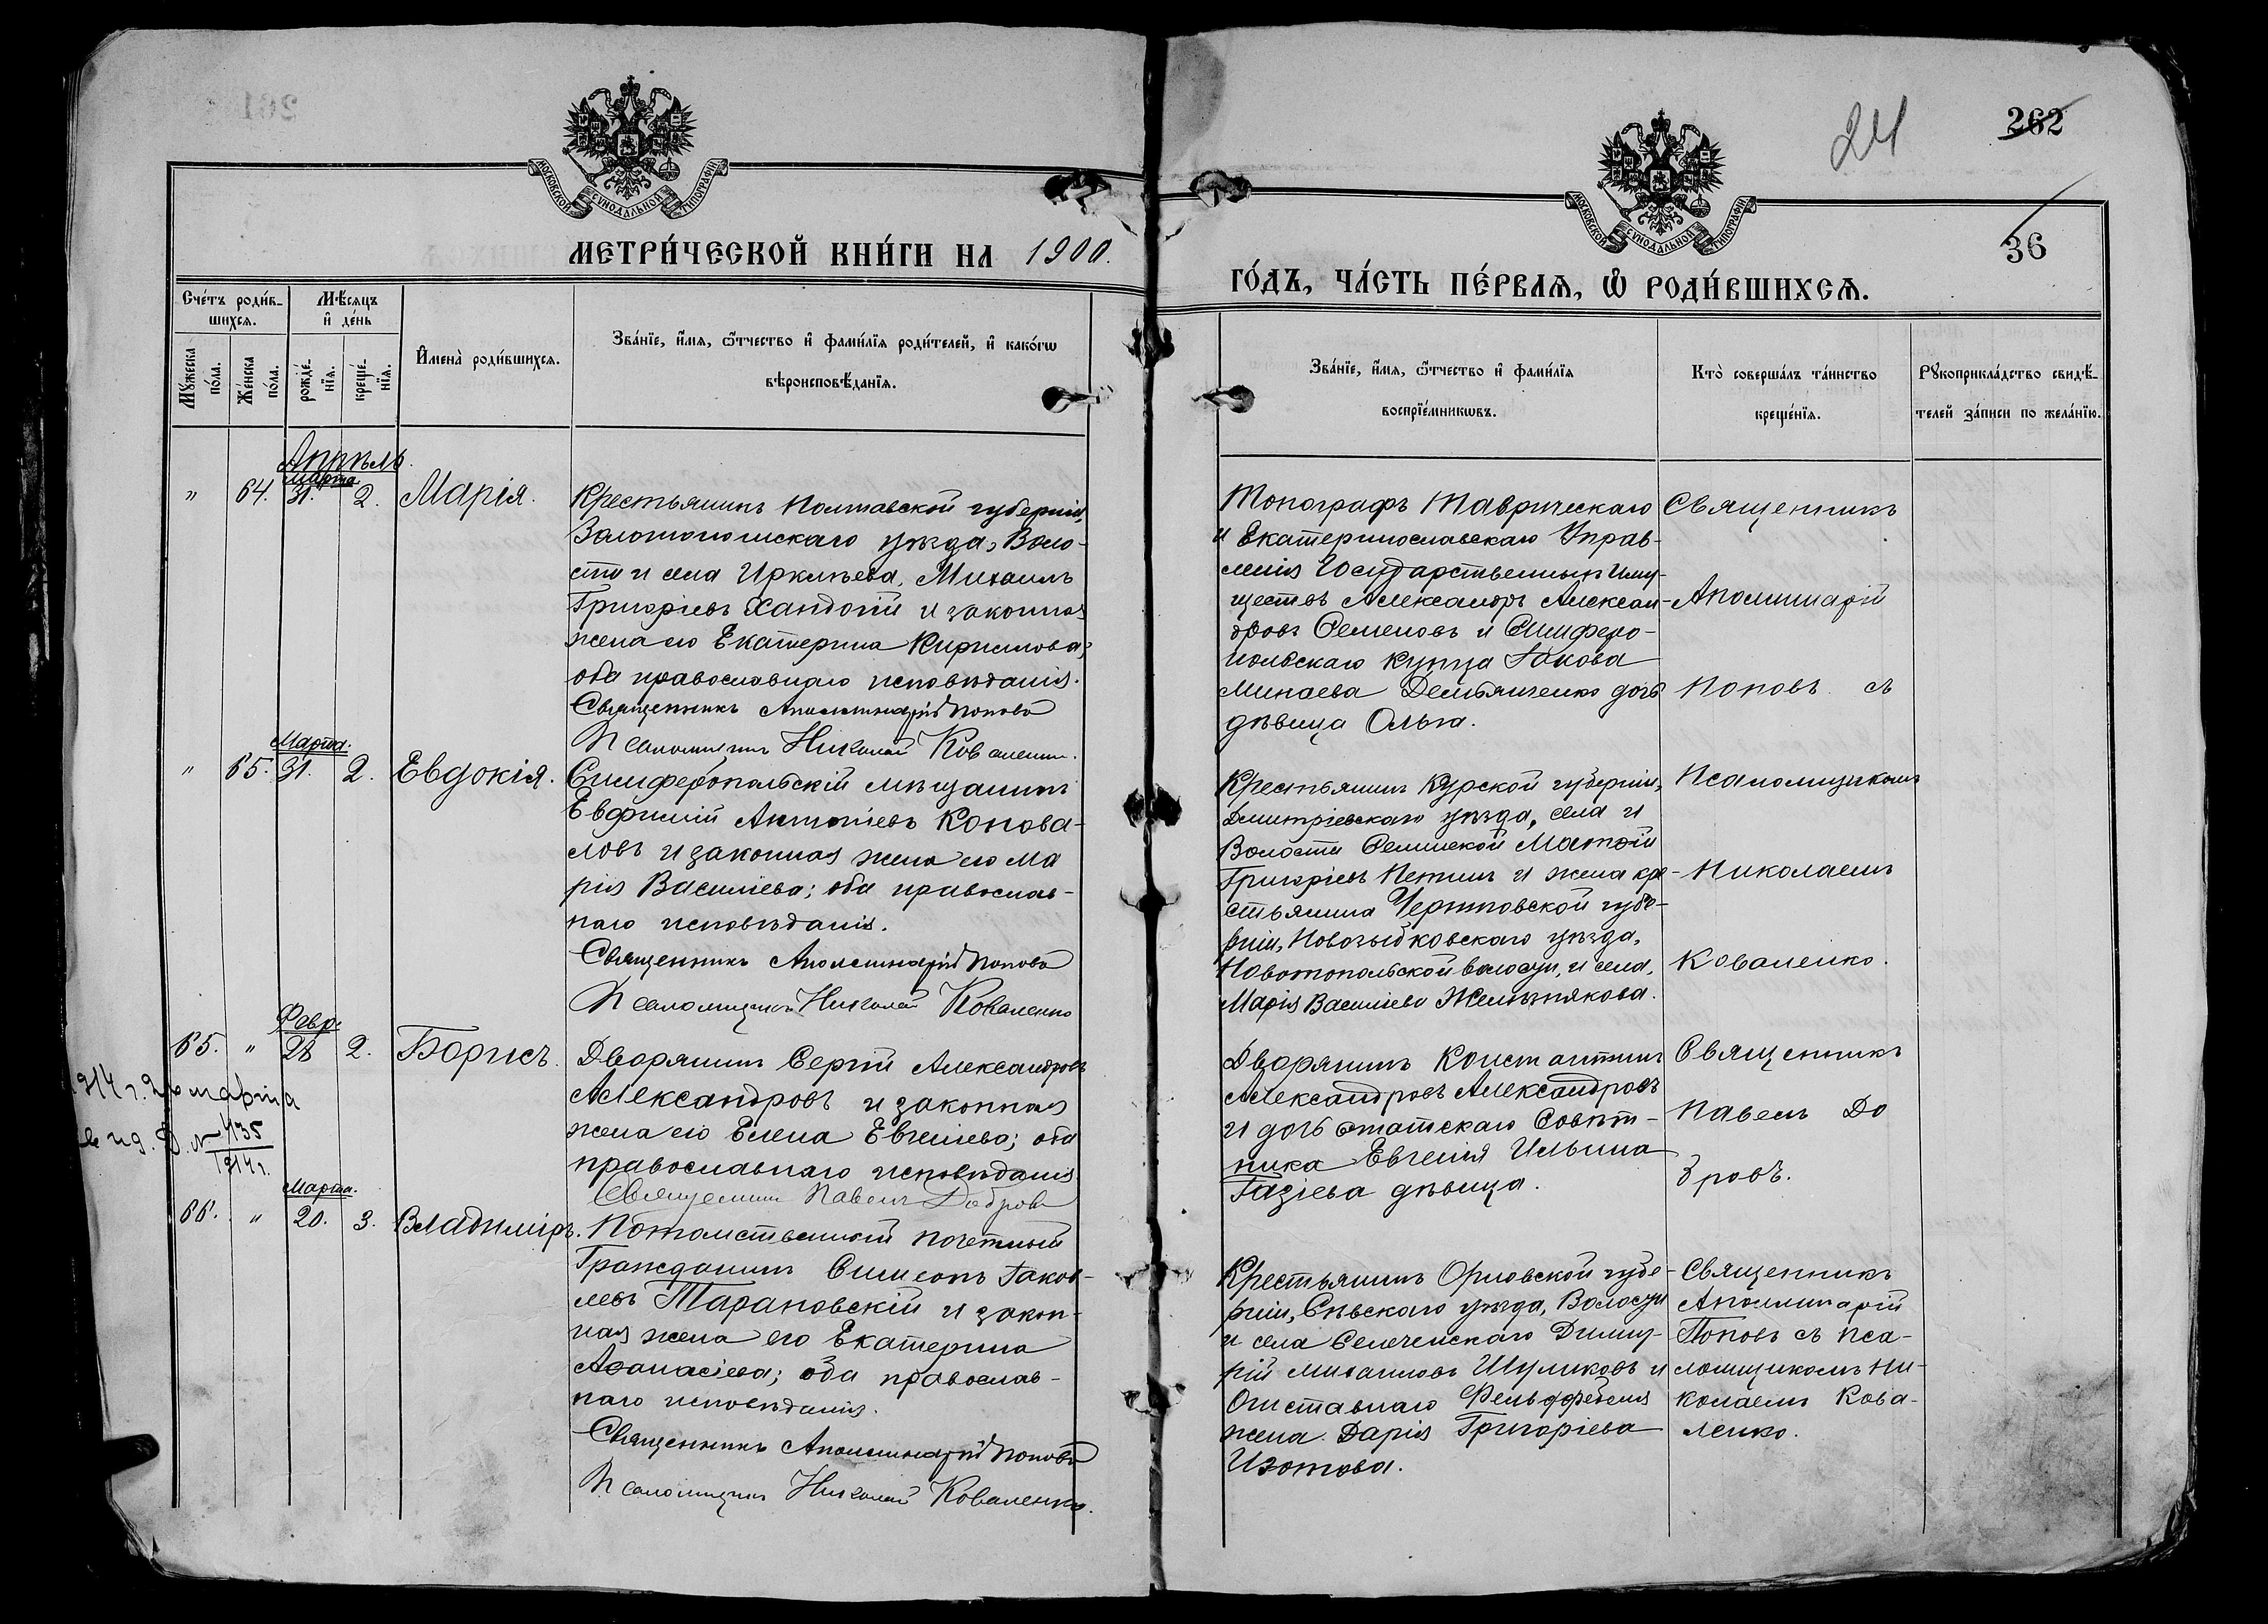 262
24
36
МОСКОВСКОЙ СѴНОДАЛЬНОЙ ТИПОГРАФІИ
МОСКОВСКОЙ СѴНОДАЛЬНОЙ ТИПОГРАФІИ
МЕТРИ́ЧЕСКОЙ КНИ́ГИ НА 1900.
ГО́ДЪ, ЧА́СТЬ ПЕ́РВАЯ, Ѡ҆ РОДИ́ВШИХСЯ.
Сче́тъ роди́в-
шихся.
Мѣ́сяцъ
и҆ де́нь
Мꙋ́жеска
по́ла.
Же́нска
по́ла.
рожде́-
нїя.
креще́-
нїя.
И҆мена̀ роди́вшихся.
Зва́нїе, и҆́мя, ѻ҆́тчество и҆ фами́лїя роди́телей, и҆ како́гѡ
вѣроисповѣ́данїя.
Зва́нїе, и҆́мя, ѻ҆́тчество и҆ фами́лїя
воспрїе́мникѡвъ.
Кто̀ соверша́лъ та́инство
креще́нїя.
Рꙋкоприкла́дство свидѣ́-
телей за́писи по жела́нїю.
Апрѣль.
Марта
" 64. 31. 2. Марія.
Крестьянинъ Полтавской губерніи,
Золотоношскаго уѣзда, Воло-
сти и села Ирклѣева, Михаилъ
Григорьевъ Хандогій и законная
жена его Екатерина Кириллова;
оба православнаго исповѣданія.
Священникъ Аполлинарій Поповъ
Псаломщикъ Николай Коваленко.
Топографъ Таврическаго
и Екатеринославскаго Управ-
ленія Государственныхъ Иму-
ществъ Александръ Алексан-
дровъ Семеновъ и Симферо-
польскаго купца Іакова
Минаева Демьянченко дочь
дѣвица Ольга.
Священникъ
Аполлинарій
Поповъ съ
Марта.
" 65. 31. 2. Евдокія.
Симферопольскій мѣщанинъ
Евфимій Антоніевъ Конова-
ловъ и законная жена его Ма
рія Василіева; оба православ-
наго исповѣданія.
Священникъ Аполлинарій Поповъ
Псаломщикъ Николай Коваленко
Крестьянинъ Курской губерніи,
Дмитріевскаго уѣзда, села и
Волости Селинской Матвѣй
Григорьевъ Петинъ и жена кре-
стьянина Черниговской губе-
рніи, Новозыбковскаго уѣзда,
Новотопольской волости, и села,
Марія Василіева Желѣзнякова.
Псаломщикомъ
Николаемъ
Коваленко.
Февр.
65. " 28 2. Борисъ.
1914 г. 2 марта
вид. Д. № 1135
1914 г.
Дворянинъ Сергій Александровъ
Александровъ и законная
жена его Елена Евгеніева; оба
православнаго исповѣданія
Священникъ Павелъ Добровъ
Дворянинъ Константинъ
Александровъ Александровъ
и дочь статскаго Совѣт-
ника Евгенія Ильина
Газіева дѣвица.
Священникъ
Павелъ До
бровъ.
Марта.
66. " 20. 3. Владиміръ.
Потомственный почетный
Гражданинъ Симеонъ Іаков-
левъ Тарановскій и закон-
ная жена его Екатерина
Аѳанасіева; оба православ-
наго исповѣданія.
Священникъ Аполлинарій Поповъ
Псаломщикъ Николай Коваленко.
Крестьянинъ Орловской губе-
рніи, Сѣвскаго уѣзда, Волости
и села Селеченскаго Димит-
рій Михаиловъ Шуликовъ и
Отставнаго Фельдфебеля
жена Дарія Григорьева
Изотова.
Священникъ
Аполлинарій
Поповъ съ Пса-
ломщикомъ Ни-
колаемъ Кова-
ленко.